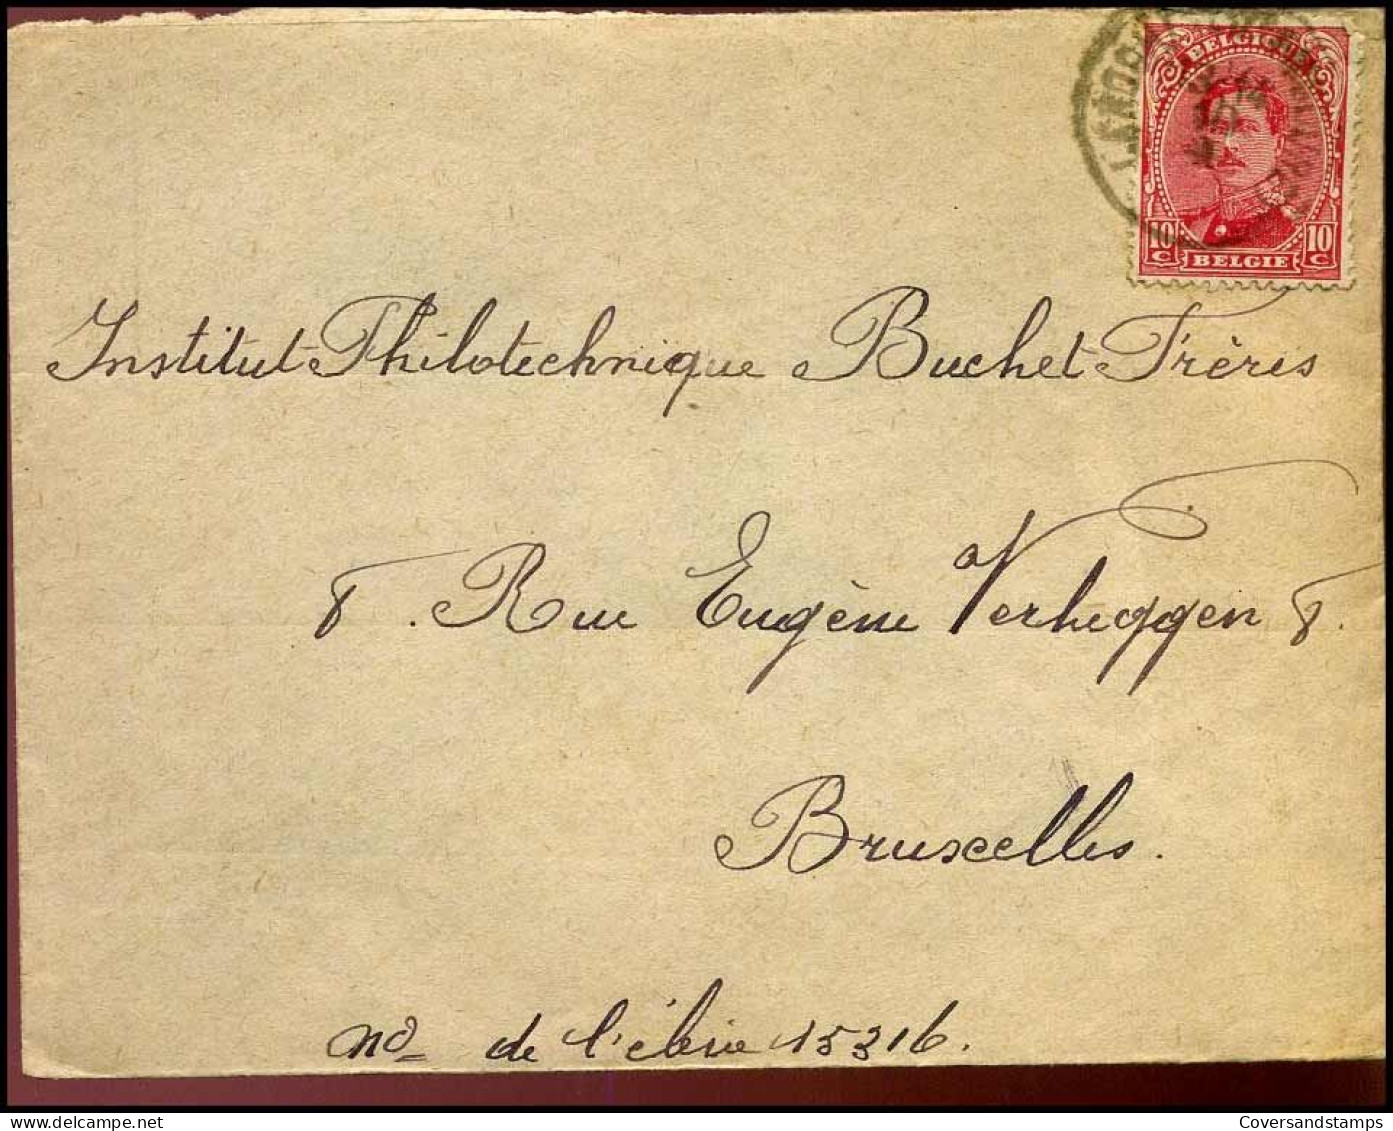 BELGIQUE
10 C 10 C
BELGIE
Institut Philotechnique Buchet Frères
8. Rue Eugène Verheggen 8.
Bruxelles.
no de l'élève 15316.
Coversandstamps